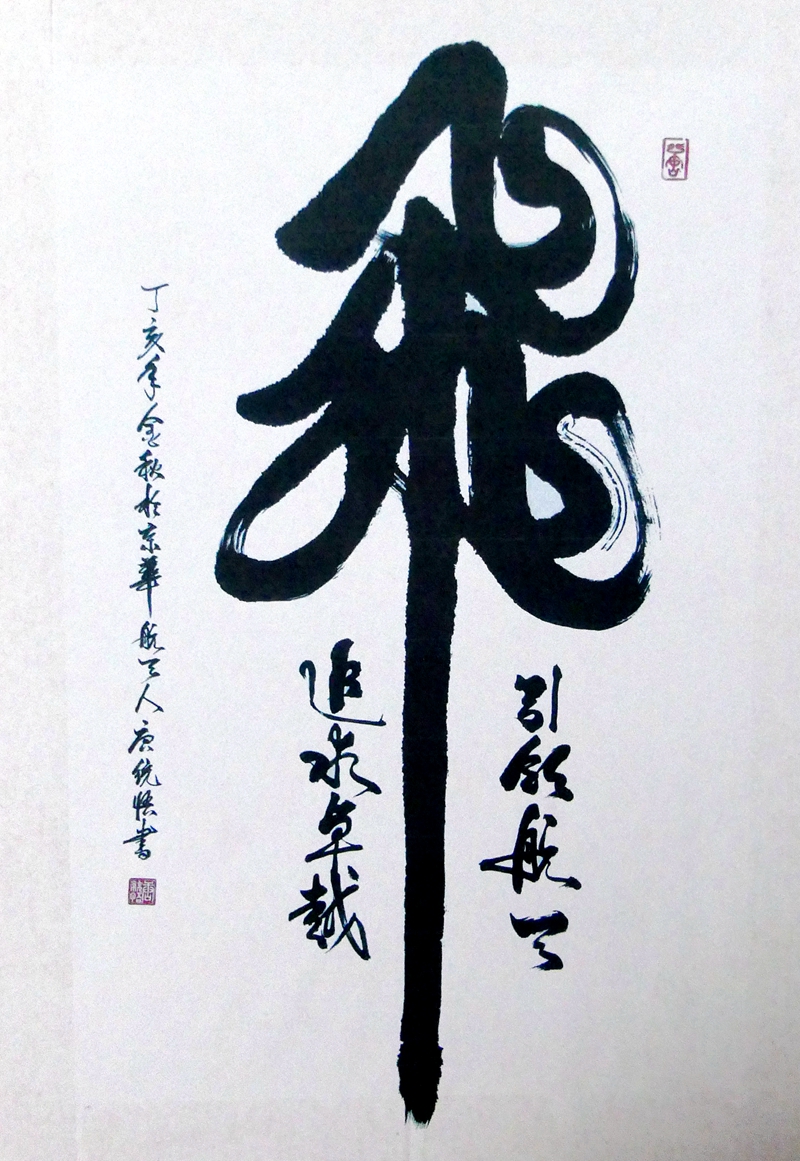 飛
引领航天
追求卓越
丁亥年金秋於京華航天人唐统悟書